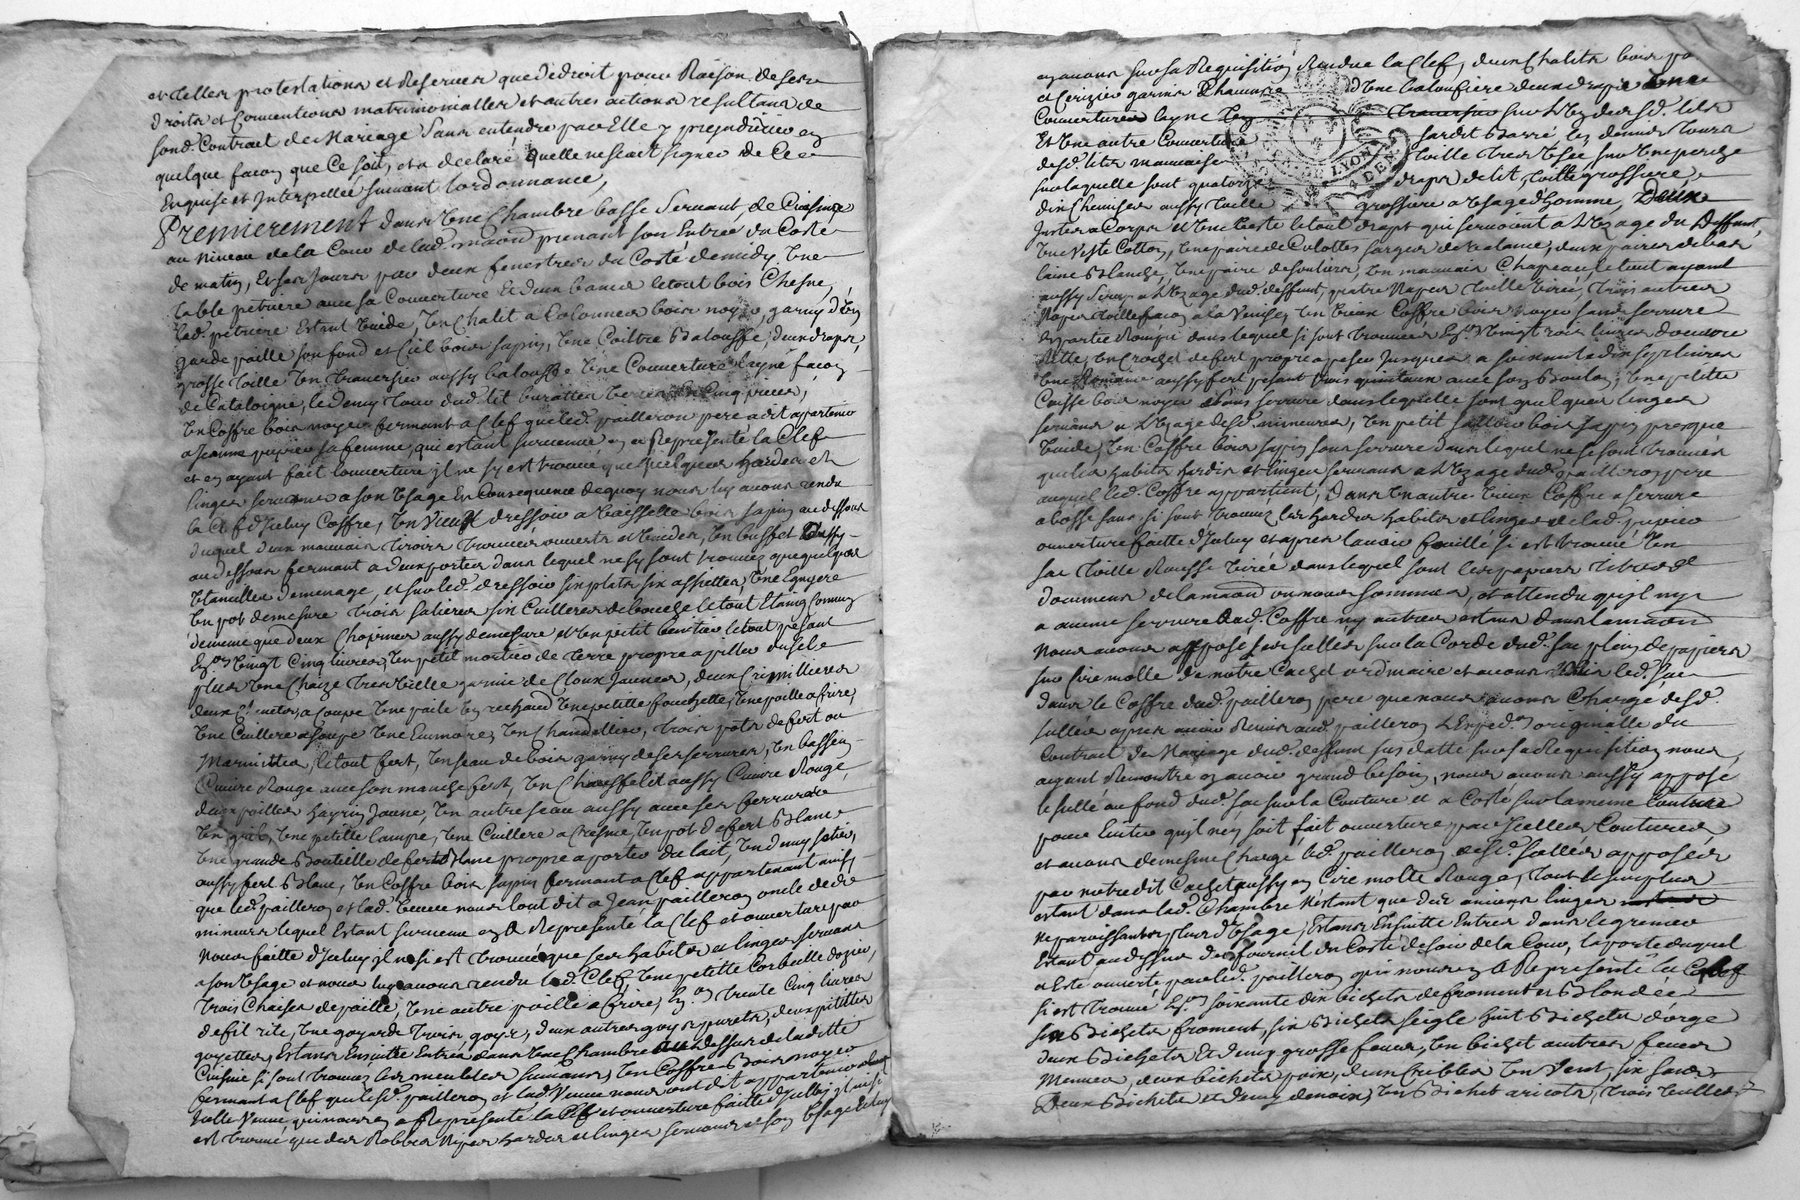 et telles protestations et Reserves que de droit pour Raison de ses
droits et Conventions matrimonialles et autres actions resultans de
sond. Contract de Mariage sans entendre par Elle y prejudicier en
quelque facon que Ce soit, et a declaré quelle ne scait signer de Ce
Enquise et Interpellée suivant lordonnance,
Premierement dans Une Chambre basse servant de Cuisine
au niveau de la Cour de lad. maison prenant son Entrée du Costé
de matin, Et ses Jours par deux fenestres du Costé de midy Une
table petriere avec sa Couverture Et deux bancs le tout bois Chesne,
lad. petriere Estant Vuide, Un Chalit a Colonnes bois noyer, garny d'un
garde paille son fond et Ciel bois sapin, Une Coiltre Balouffe, deux draps
grosse toille Un traversier aussy balouffe Une Couverture layne facon
de Catalogne, le demy tour dud. lit
Un Coffre bois noyer fermant a Clef que led. pailleron pere a dit appartenir
a Jeanne papier sa femme, qui estant survenue en a Representé la Clef
et en ayant fait louverture il ne sy est trouvé que quelques hardes et
linges servans a son Usage En Consequence de quoy nous luy avons rendu
la Clef d'Iceluy Coffre, Un Vieux dressoir a Vaisselle bois sapin au dessous
duquel deux mauvais tiroirs trouvés ouverts et Vuides, Un buffet aussy
au dessous fermant a deux portes dans lequel ne sy sont trouvez que quelques
Utancilles de menage, et sur led. dressoir six plats six assiettes, Une Eguyere
Un pot demesure trois salieres six Cuilleres de bouche le tout Etaing Commun
de meme que deux Chopines aussy demesure et Un petit benitier le tout pesant
En.on Vingt Cinq livres, Un petit mortier de terre propre a piller du sel
plus Une Chaize tres Vieille garnie de Cloux Jaunes, deux Crimillieres
deux a Coupe Une poile Un rechaud Une petite fourchette, Une poille a frire,
Une Cuillere a soupe Une Ecumoire, Un Chandellier, trois pots de fert ou
Marmittes, le tout fert, Un seau de bois garny de ses serrures, Un bassin
Cuivre Rouge avec son manche fert, Un Chauffelit aussy Cuivre Rouge,
deux poilles Jaune, Un autre seau aussy avec ses ferrures
Un gril, Une petite lampe, Une Cuillere a Cresme, Un pot de fert Blanc
Une grande Bouteille de fert Blanc propre a porter du lait, Un demy setier,
aussy fert Blanc, Un Coffre bois sapin fermant a Clef appartenant ainsy
que led. pailleron et lad. Veuve nous lont dit a Jean pailleron oncle desd.
mineurs lequel Estant survenu en a Representé la Clef et ouverture par
Nous faitte d'Iceluy il ne si est trouvé que ses habits et linges servans
a son Usage et nous luy avons rendu led. Clef, Une petite Corbeille dozier,
trois Chaises de paille, Une autre poille a frire, En.on trente Cinq livres
de fil rite, Une goyarde trois goyes, deux autres goyes purets, deux petittes
goyettes, Estans Ensuitte Entrés dans Une Chambre au dessus de laditte
Cuisine si sont trouvez les meubles suivans, Un Coffre Bois noyer
fermant a Clef que led. pailleron et lad. Veuve nous ont dit appartenir a
Icelle Veuve qui nous en a Representé la Clef et ouverture faitte d'Iceluy il ne si
est trouvé que des Robbes Nipes hardes et linges servans a son Usage
ayavans sur sa Requisition Rendue la Clef, deux Chalits bois
et Cerizier garnis Chaucune d'Une baloufiere deux draps Une
Couverture layne sur Un desd. lits
Et Une autre Couverture sardit Barré les demis tours
desd. lits mauvaise toille tres Usée sur Une perche
sur laquelle sont quatorze draps de lit, toille grossiere
dix Chemises aussy toille grossiere a Usage d'homme, Deux
Justes a Corps et Une Veste le tout drapt qui servoient a l'Usage du Deffunt,
Une Veste Cotton, Une paire de Culottes sarges de deux paires de bas
laine Blanche, Une paire de souliers, Un mauvais Chapeau le tout ayant
aussy servy a l'Usage dud. deffunt, quatre Napes toille trois autres
Napes toille facon a la Venise, Un Vieux Coffre bois noyer sans serrure
En partie Rompu dans lequel si sont trouvés En.on Vingt trois livres doeuvre
Ritte, Un Crochet de fert propre a peser Jusques a soixante dix sept livres
Une Romaine aussy fert pesant trois quintaux avec son Boulon, Une petite
Caisse bois noyer sans serrure dans laquelle sont quelques linges
servans a l'Usage desd. mineures, Un petit bois sapin presque
Vuide, Un Coffre bois sapin sans serrure dans lequel ne se sont trouvés
que les habits hardes et linges servans a l'Usage dud. pailleron pere
auquel led. Coffre appartient, dans Un autre Vieux Coffre a serrure
a bosse sans si sont trouvez les hardes habits et linges de lad. papier
ouverture faitte d'Iceluy et apres lavoir fouillé si est trouvé Un
sac toille Rousse tirée dans lequel sont les papiers titres et
documens de la maison ou nous sommes, et attendu quil ny
a aucune serrure aud. Coffre ny autres estans dans la maison
Nous avons apposé les sceelles sur la Corde dud. sac plein de papiers
sur Cire molle de notre Cachet ordinaire et avons mis led. sac
dans le Coffre dud. pailleron pere que nous avons Chargé desd.
sellés apres avoir Remis aud. pailleron l'Exped.on originalle du
Contract de Mariage dud. deffunt sus datté sur sa Requisition nous
ayant Remontré en avoir grand besoin, nous avons aussy apposé
le sellé au fond dud. sac sur la Couture et a Costé sur la meme Couture
pour Eviter quil n'en soit fait ouverture par Icelles Coutures
et avons de mesme Chargé led. pailleron desd. sellés apposés
par notredit Cachet aussy en Cire molle Rouge, tout le surplus
estant dans lad. Chambre N'estant que des anciens linges
ne paroissants plus d'Usage, Estans Ensuitte Entrés dans le grenier
Estant au dessus du fournil du Costé de soir de la Cour, la porte duquel
a Esté ouverte par led. pailleron qui nous en a Representé la Clef
si est trouvé En.on soixante dix bichets de froment et Blondée
six Bichets froment, six Bichets seigle huit Bichets d'orge
deux Bichets Et demy grosse feves, Un bichet autres feves
Menues, deux bichets poix, deux Cribles Un Vent, six sacs
Deux Bichets et demy de noix, Un Bichet aricots, trois Vieilles